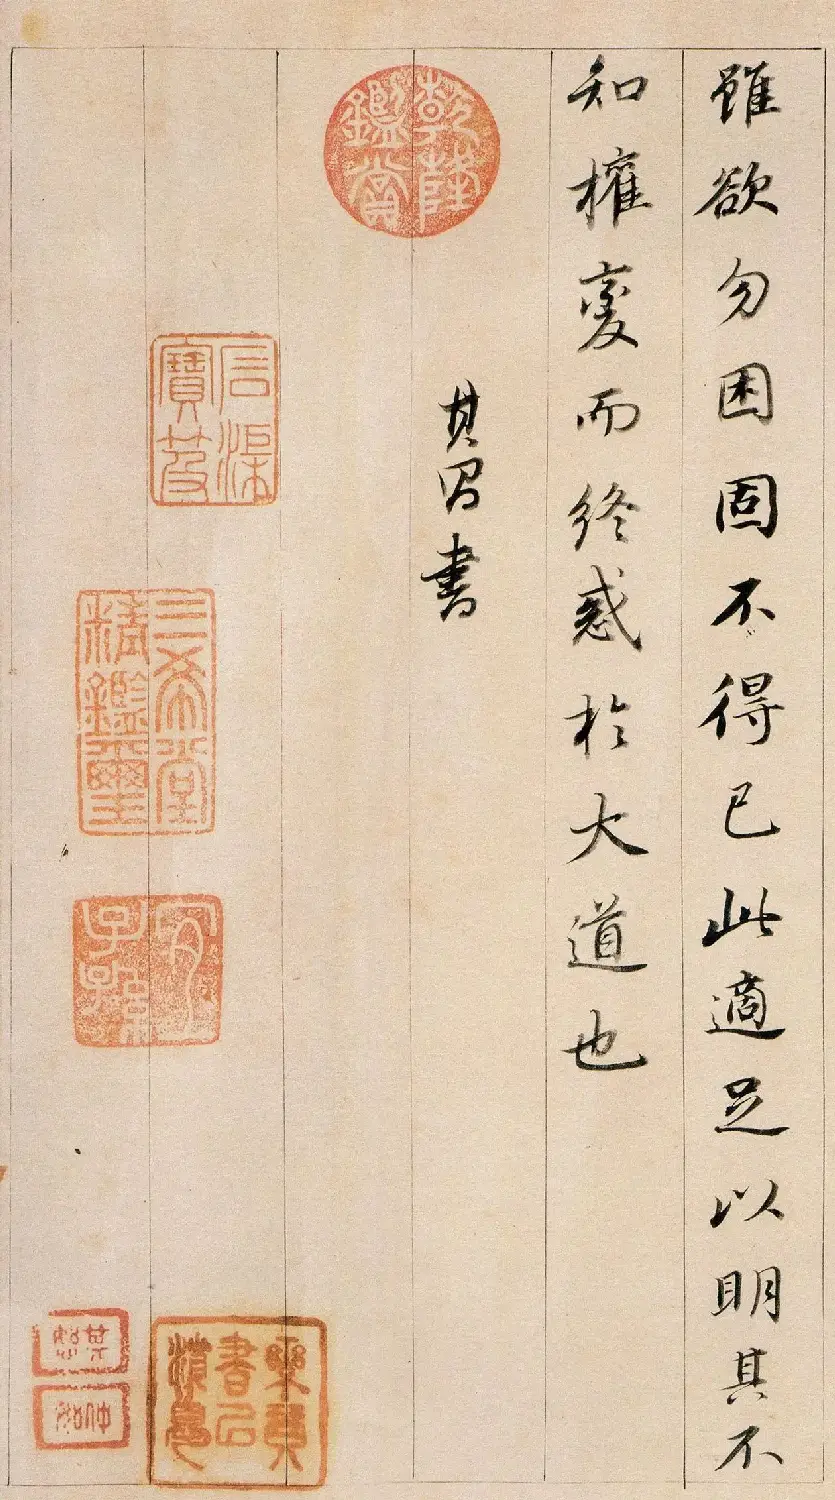 雖欲勿困固不得已此適足以明其不
知權變而終惑於大道也
其昌書
乾隆鑑賞
石渠寶笈
三希堂精鑑璽
宜子孫